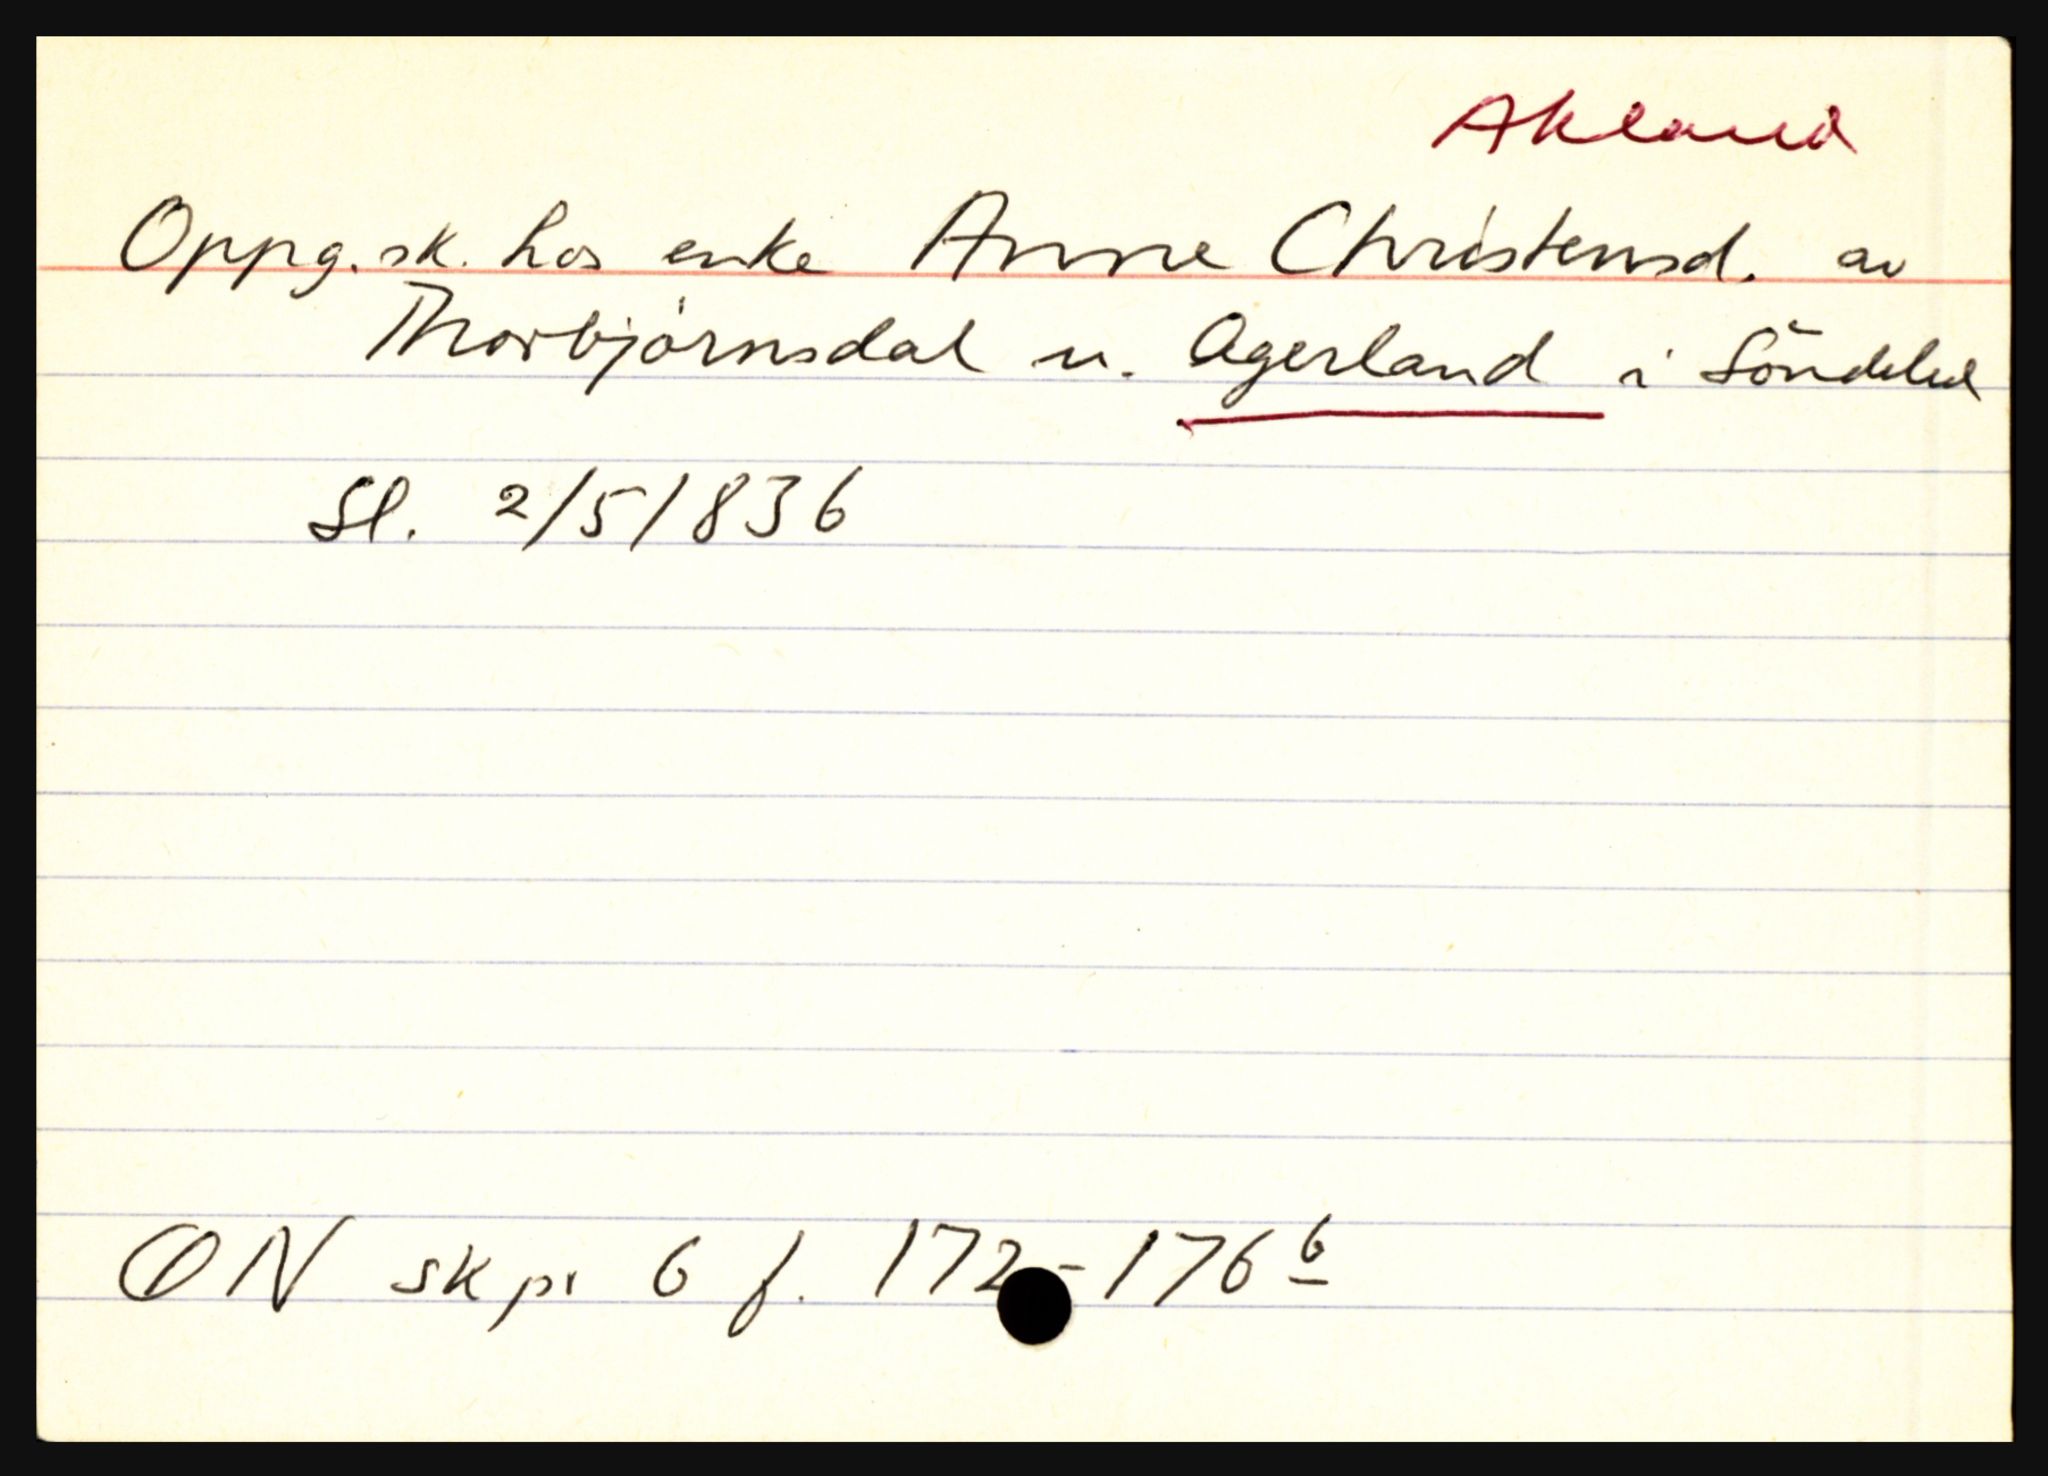 Akland
Oppg.sk. hos enke Anne Christensd. av
Thorbjörnsdal u. Agerland i Söndeled
Sl. 2/5/836
ØN skpr 6 f. 172-176<sup>b</sup>